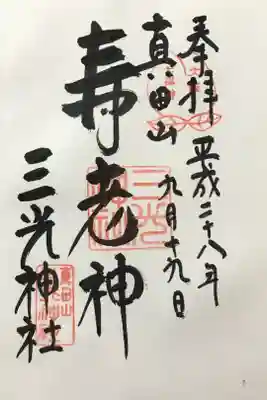 奉拝
平成二十八年
九月十九日
真田山
寿老神
三光神社
三光神社
真田山